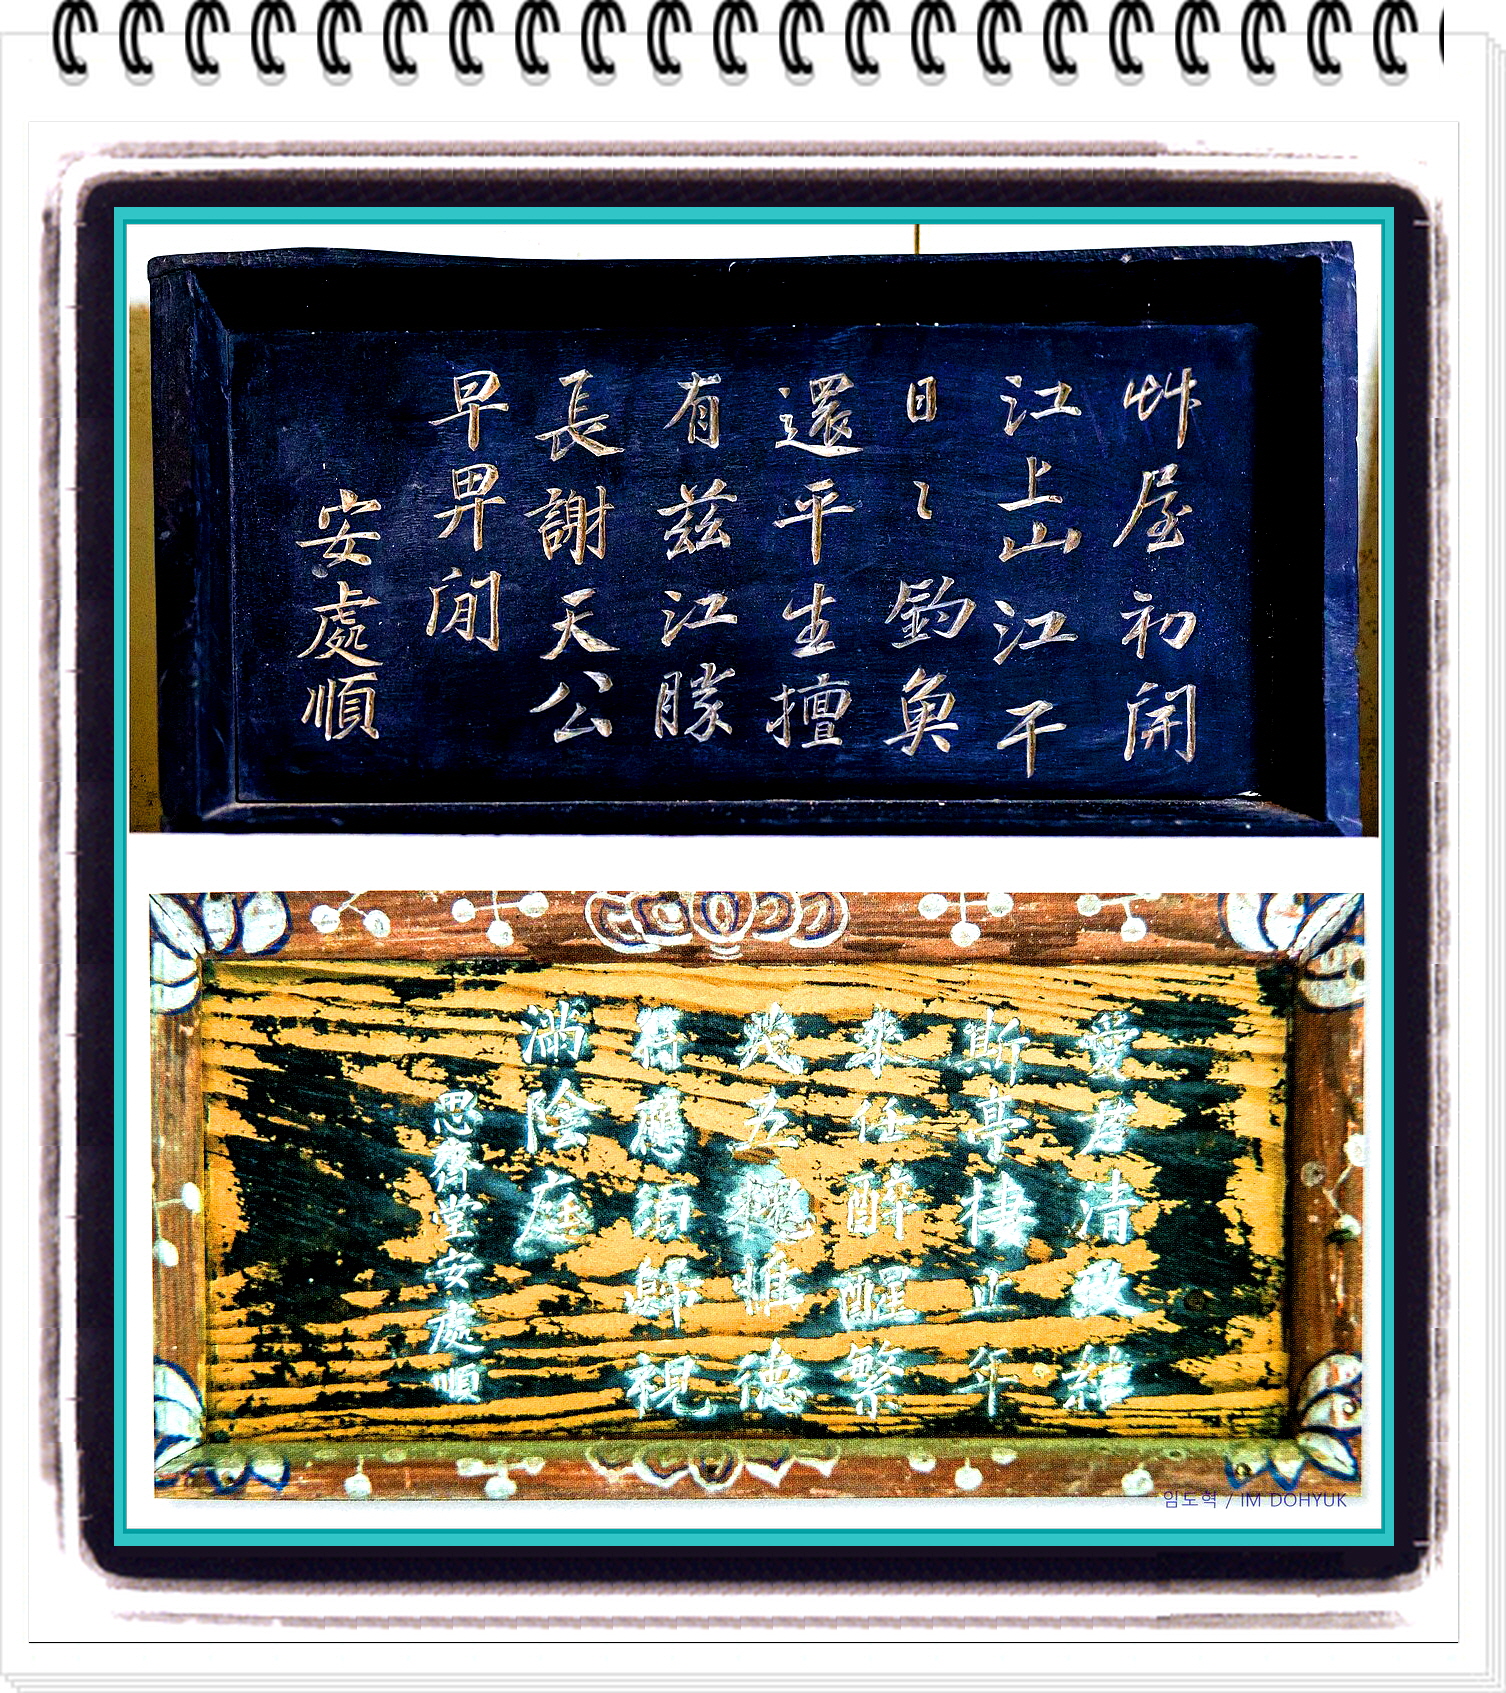 艸屋初開
江上山江干
日〻釣魚
還平生擅
有茲江勝
長謝天公
早畀閒
安處順
愛君清致維
斯亭棲止年
來任醉醒繁
茂五槐惟德
符應須歸視
滿陰庭
思齊堂安處順
임도혁 / IM DOHYUK